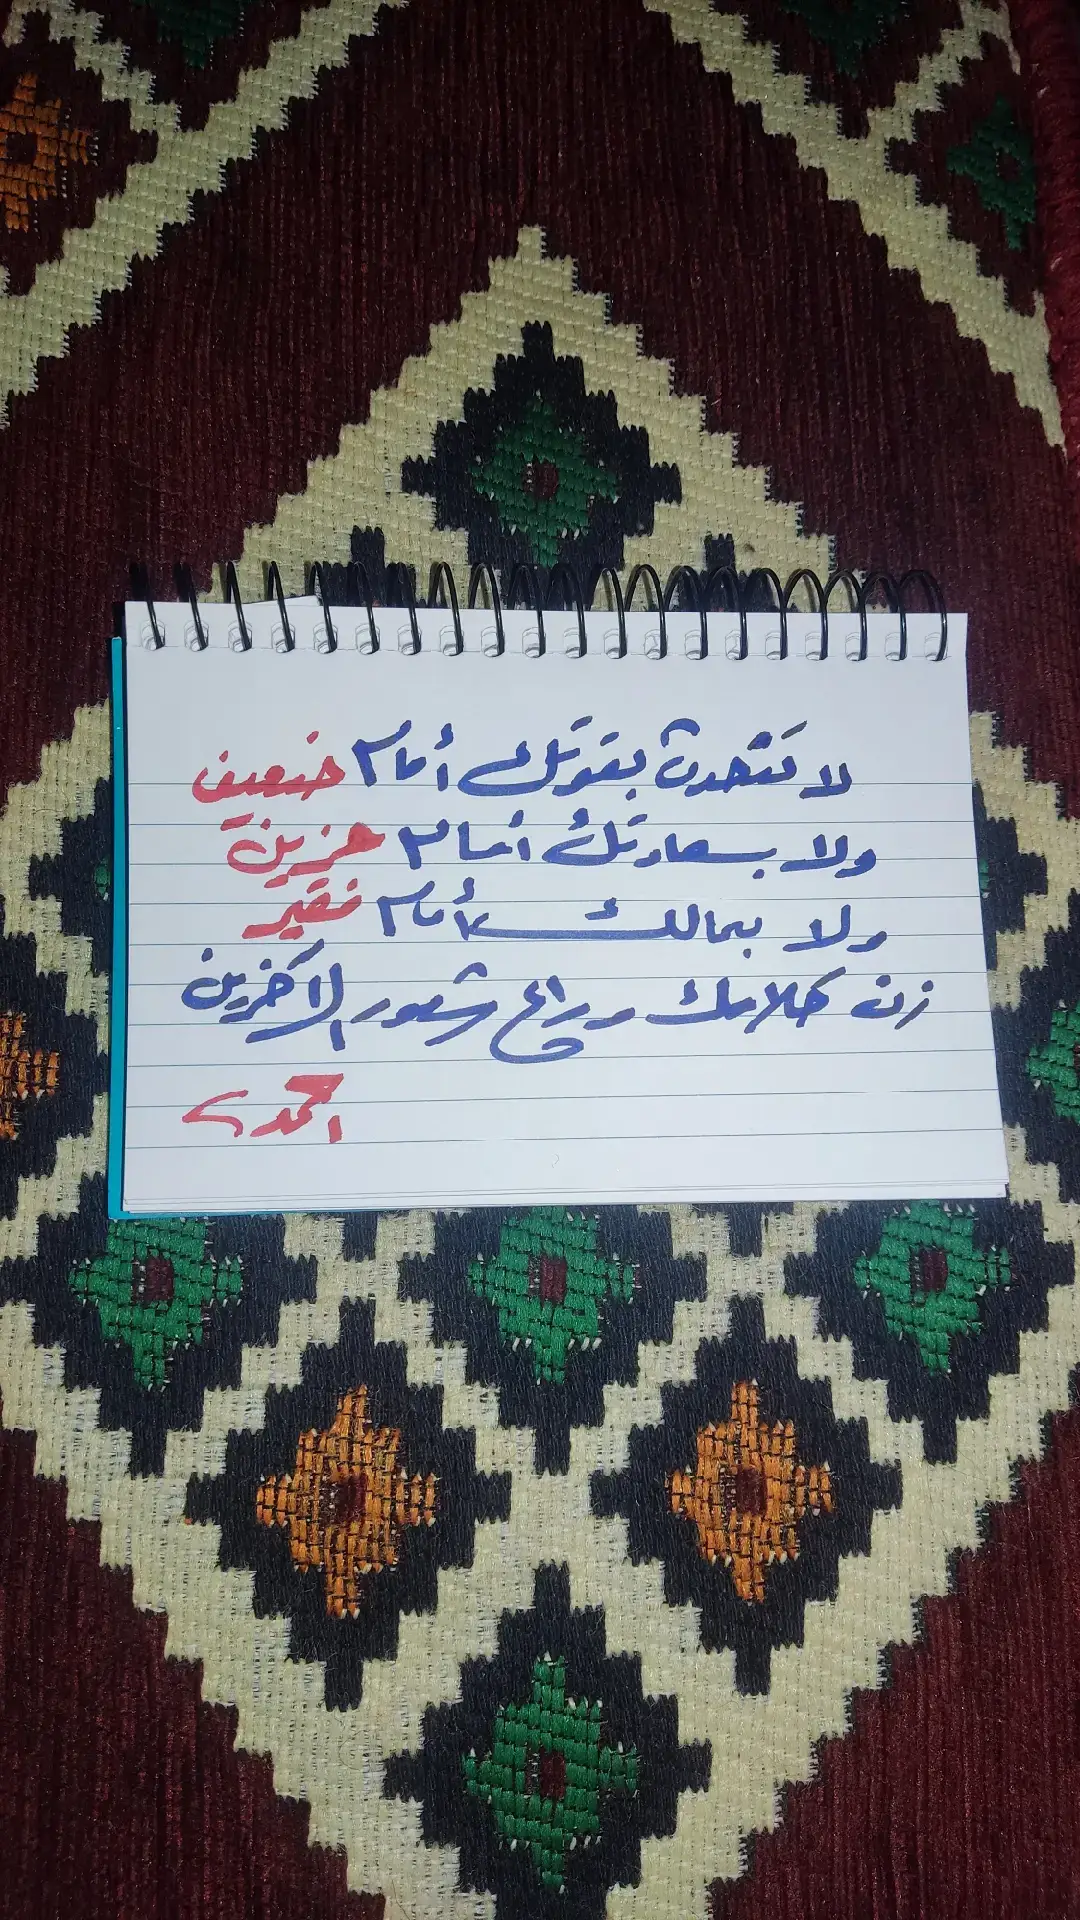 لا تتحدث بقوتك أمام ضعيف
ولا بسعادتك أمام حزين
ولا بمالك أمام فقير
زن كلامك وراع شعور الآخرين
احمد